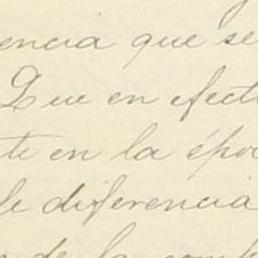 encia que se
Que en efect
te en la époc
le diferencia
de la comb